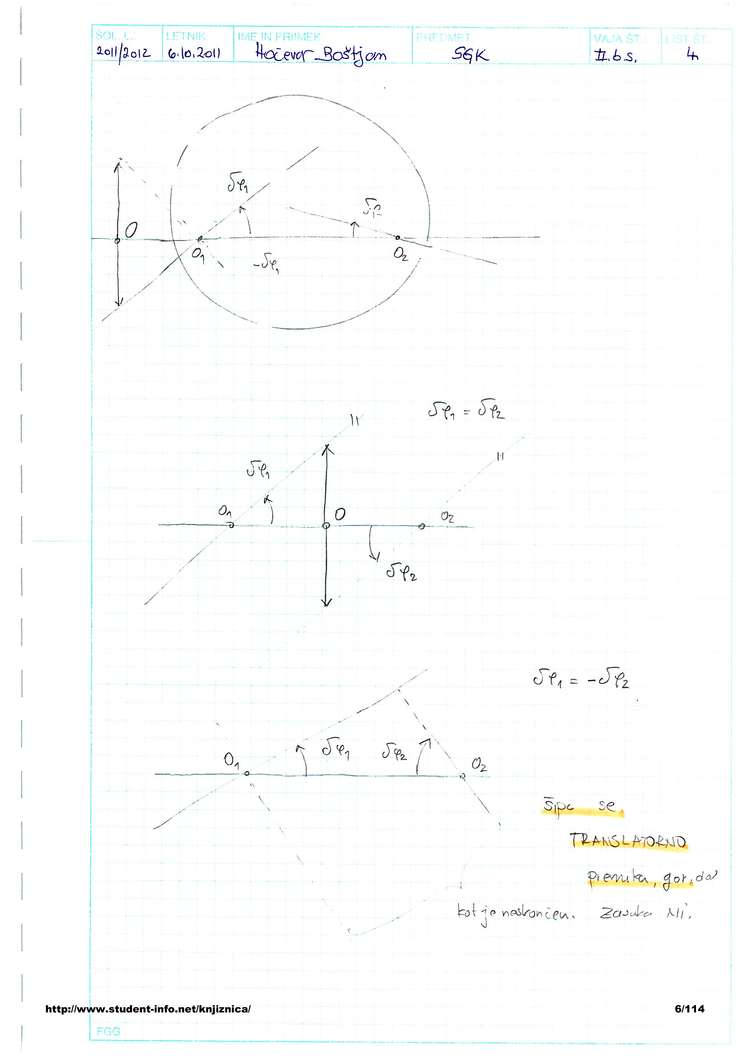 ŠOL. L. LETNIK IME IN PRIIMEK PREDMET VAJA ŠT. LIST ŠT.
2011/2012 6.10.2011 Hočevar Boštjan SGK II.b s. 4
δφ₁
O
O₁
-δφ₁
O₂
δφ₁ = δφ₂
δφ₁
O₁
O
O₂
δφ₂
δφ₁ = -δφ₂
O₁
δφ₁
δφ₂
O₂
se
TRANSLATORNO
gor, dol
kot je neskončen. Zasuka ni.
http://www.student-info.net/knjiznica/ 6/114
FGG